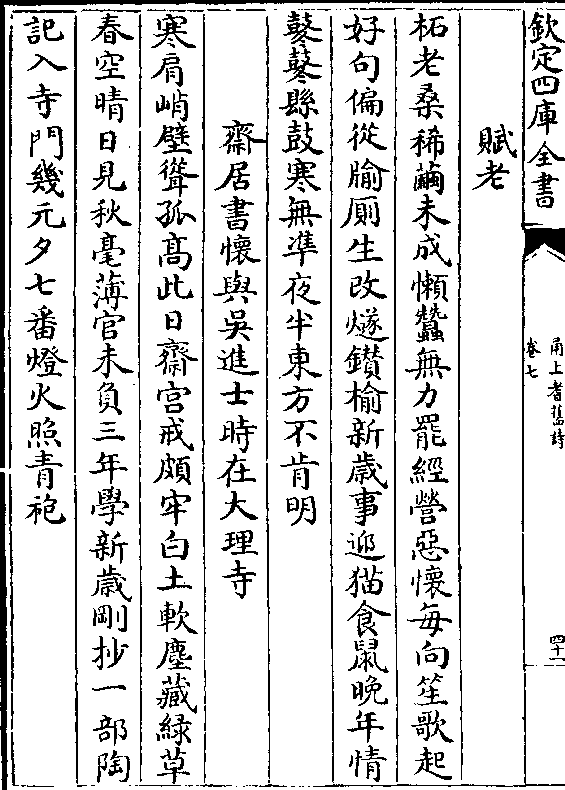 欽定四庫全書
甬上耆舊詩
卷七
四十一
賦老
柘老桑稀繭未成懶蠶無力罷經營惡懷每向笙歌起
好句偏從腧厠生改燧鑚榆新歳事迎猫食鼠晩年情
鼕鼕縣鼓寒無凖夜半東方不肯明
齋居書懷與吳進士時在大理寺
寒肩峭壁聳孤髙此日齋宫戒頗牢白土軟塵藏緑草
春空晴日見秋毫薄官未負三年學新歳剛抄一部陶
記入寺門幾元夕七番燈火照青袍